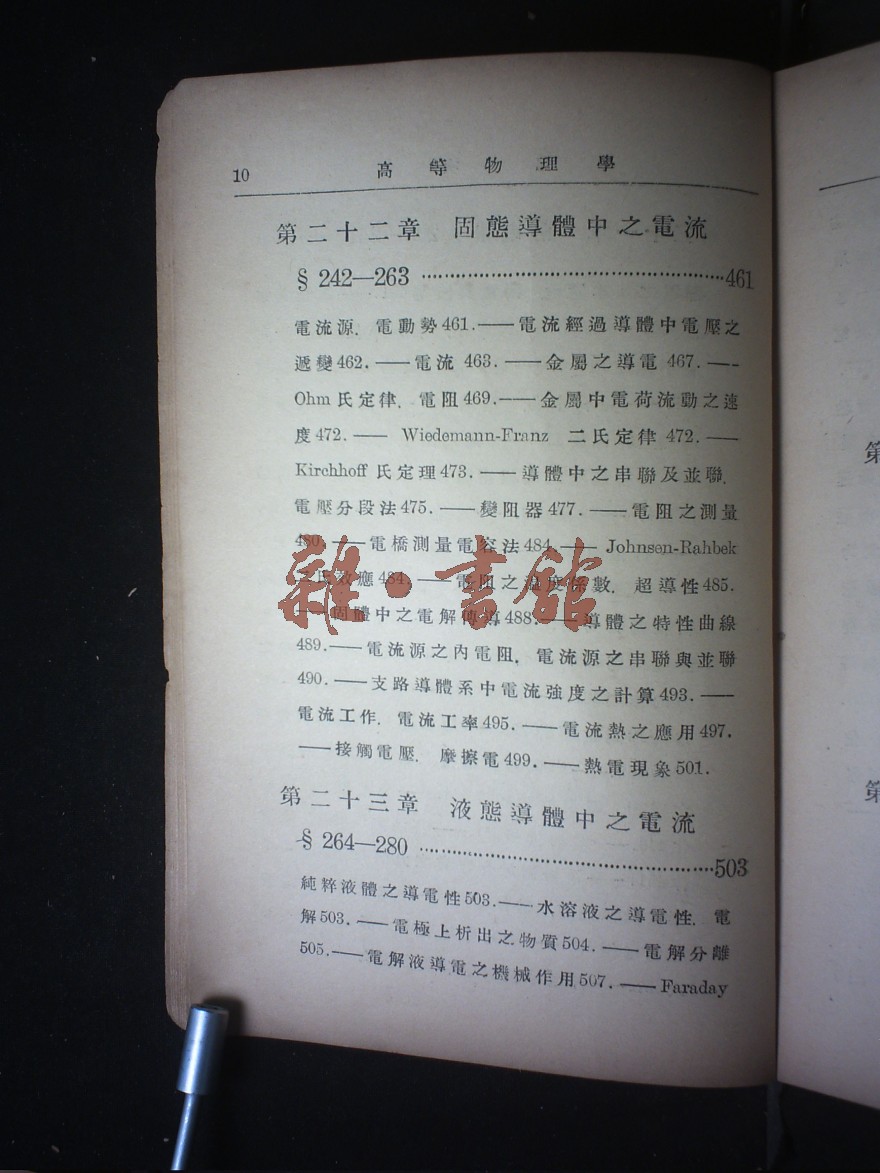 10 高等物理學
第二十二章 固態導體中之電流
§ 242—263 ……………………………………461
電流源，電動勢461.——電流經過導體中電壓之
遞變462.——電流 463.——金屬之導電 467.——
Ohm 氏定律，電阻469.——金屬中電荷流動之速
度472.—— Wiedemann-Franz 二氏定律 472.——
Kirchhoff 氏定理473.——導體中之串聯及並聯，
電壓分段法475.——變阻器477.——電阻之測量
480.——電橋測量電容法484.—— Johnsen-Rahbek
二氏效應484.——電阻之溫度係數，超導性485.
——固體中之電解傳導488.——導體之特性曲線
489.——電流源之內電阻，電流源之串聯與並聯
490.——支路導體系中電流強度之計算493.——
電流工作，電流工率495.——電流熱之應用497.
——接觸電壓，摩擦電499.——熱電現象501.
第二十三章 液態導體中之電流
§ 264—280 ……………………………………503
純粹液體之導電性503.——水溶液之導電性，電
解503.——電極上析出之物質504.——電解分離
505.——電解液導電之機械作用507.——Faraday
雜·書館
第
第